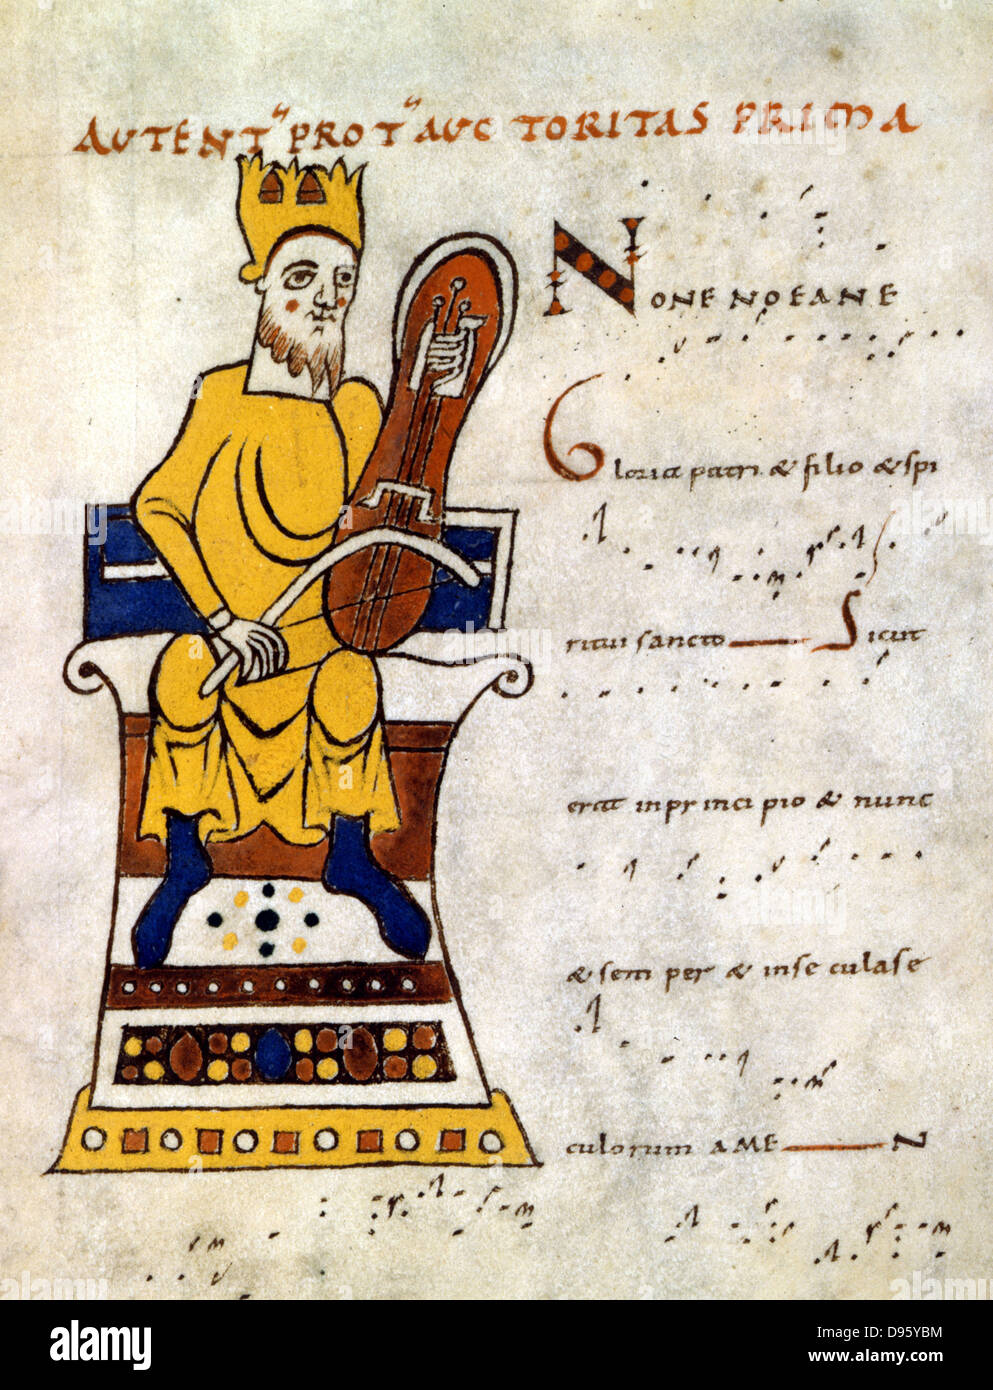 AUTENT PROT AUCTORITAS PRIMA
NONENOEANE
Gloria patri & filio & spi
ritui sancto Sicut
erat inprincipio & nunc
& semper & inseculase
culorum AMEN
alamy
D95YBM
www.alamy.com